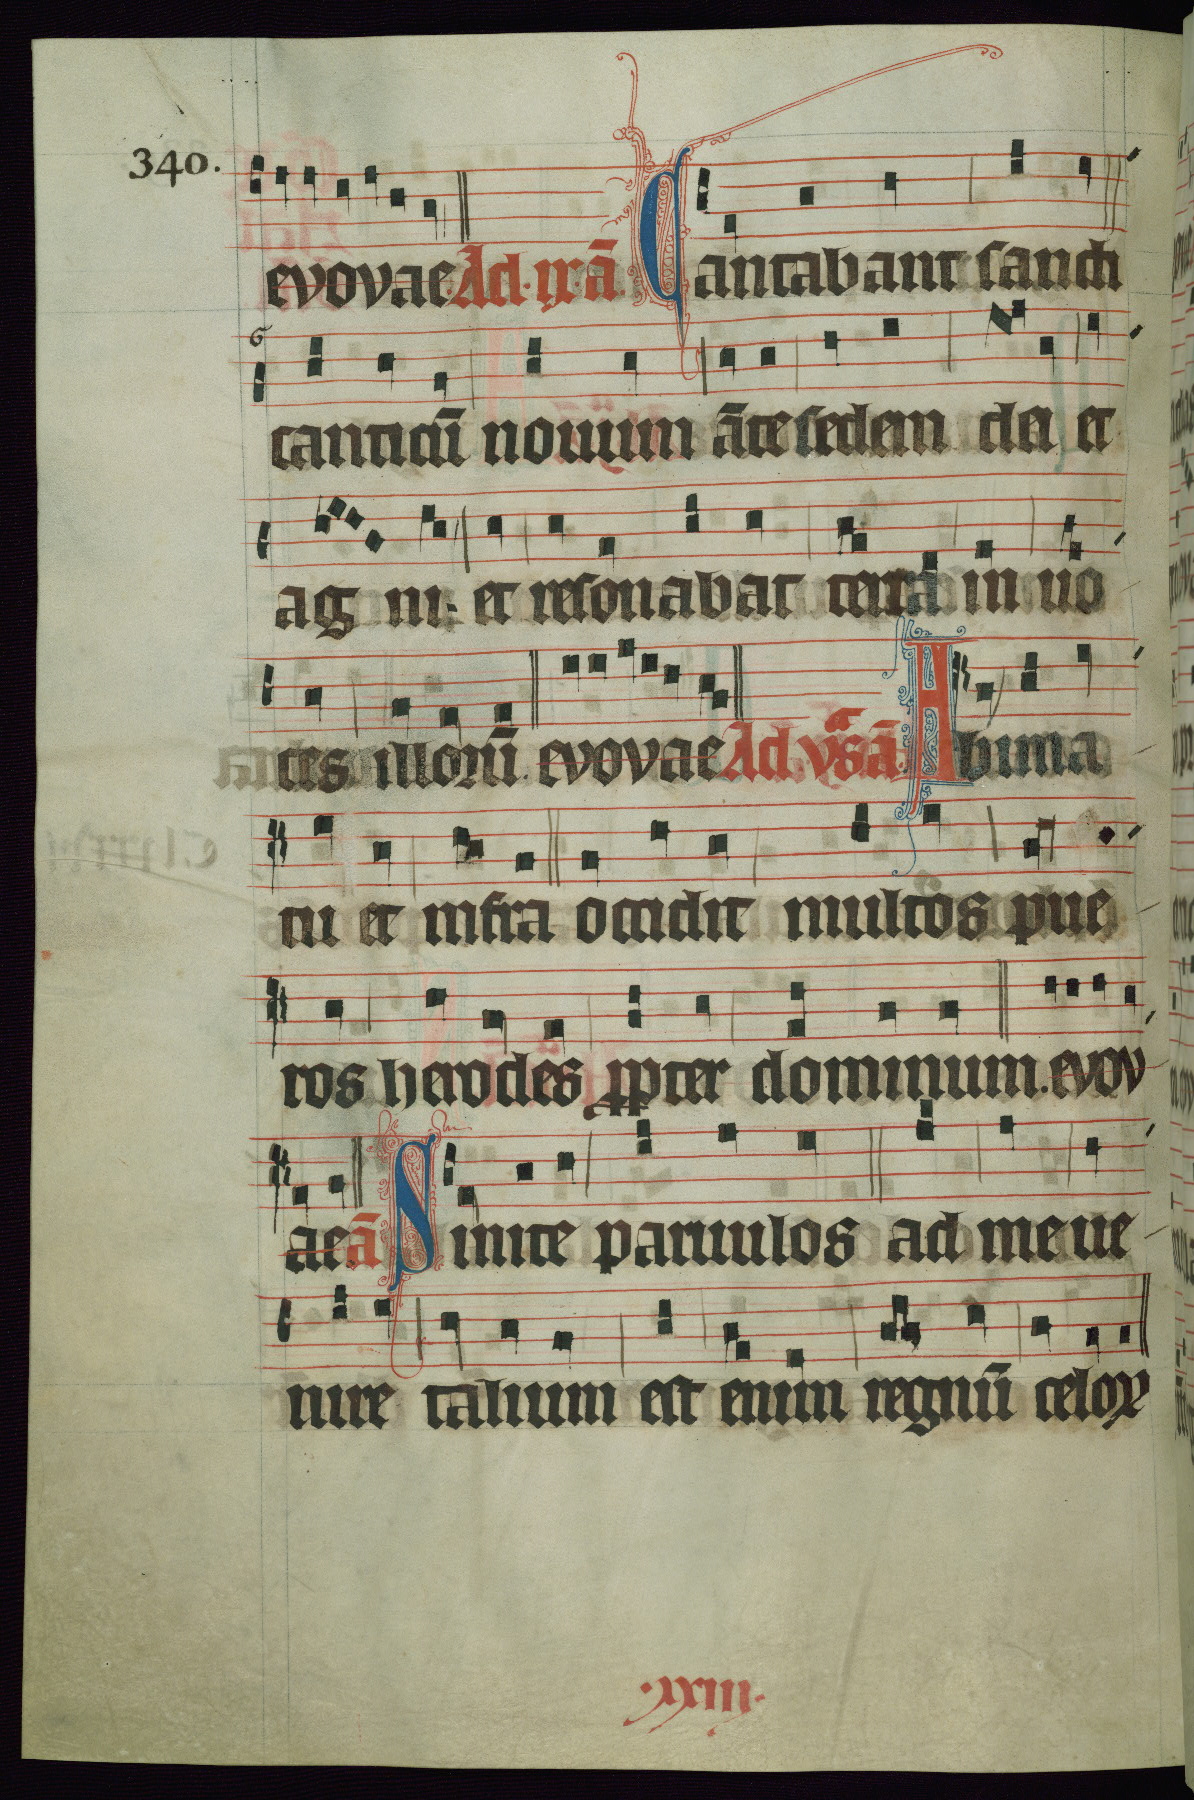 340.
evovae. Ad. ix. ā. Cantabant sancti
canticū nouum āte sedem dei et
ag ni. et resonabat terra in uo
ces illorū. evovae Ad. vs̄. ā. A bima
tu et infra occidit multos pue
ros herodes ꝓpter dominum. evov
ae ā Sinite paruulos ad me ue
nire talium est enim regnū celoꝝ
.xxiii.